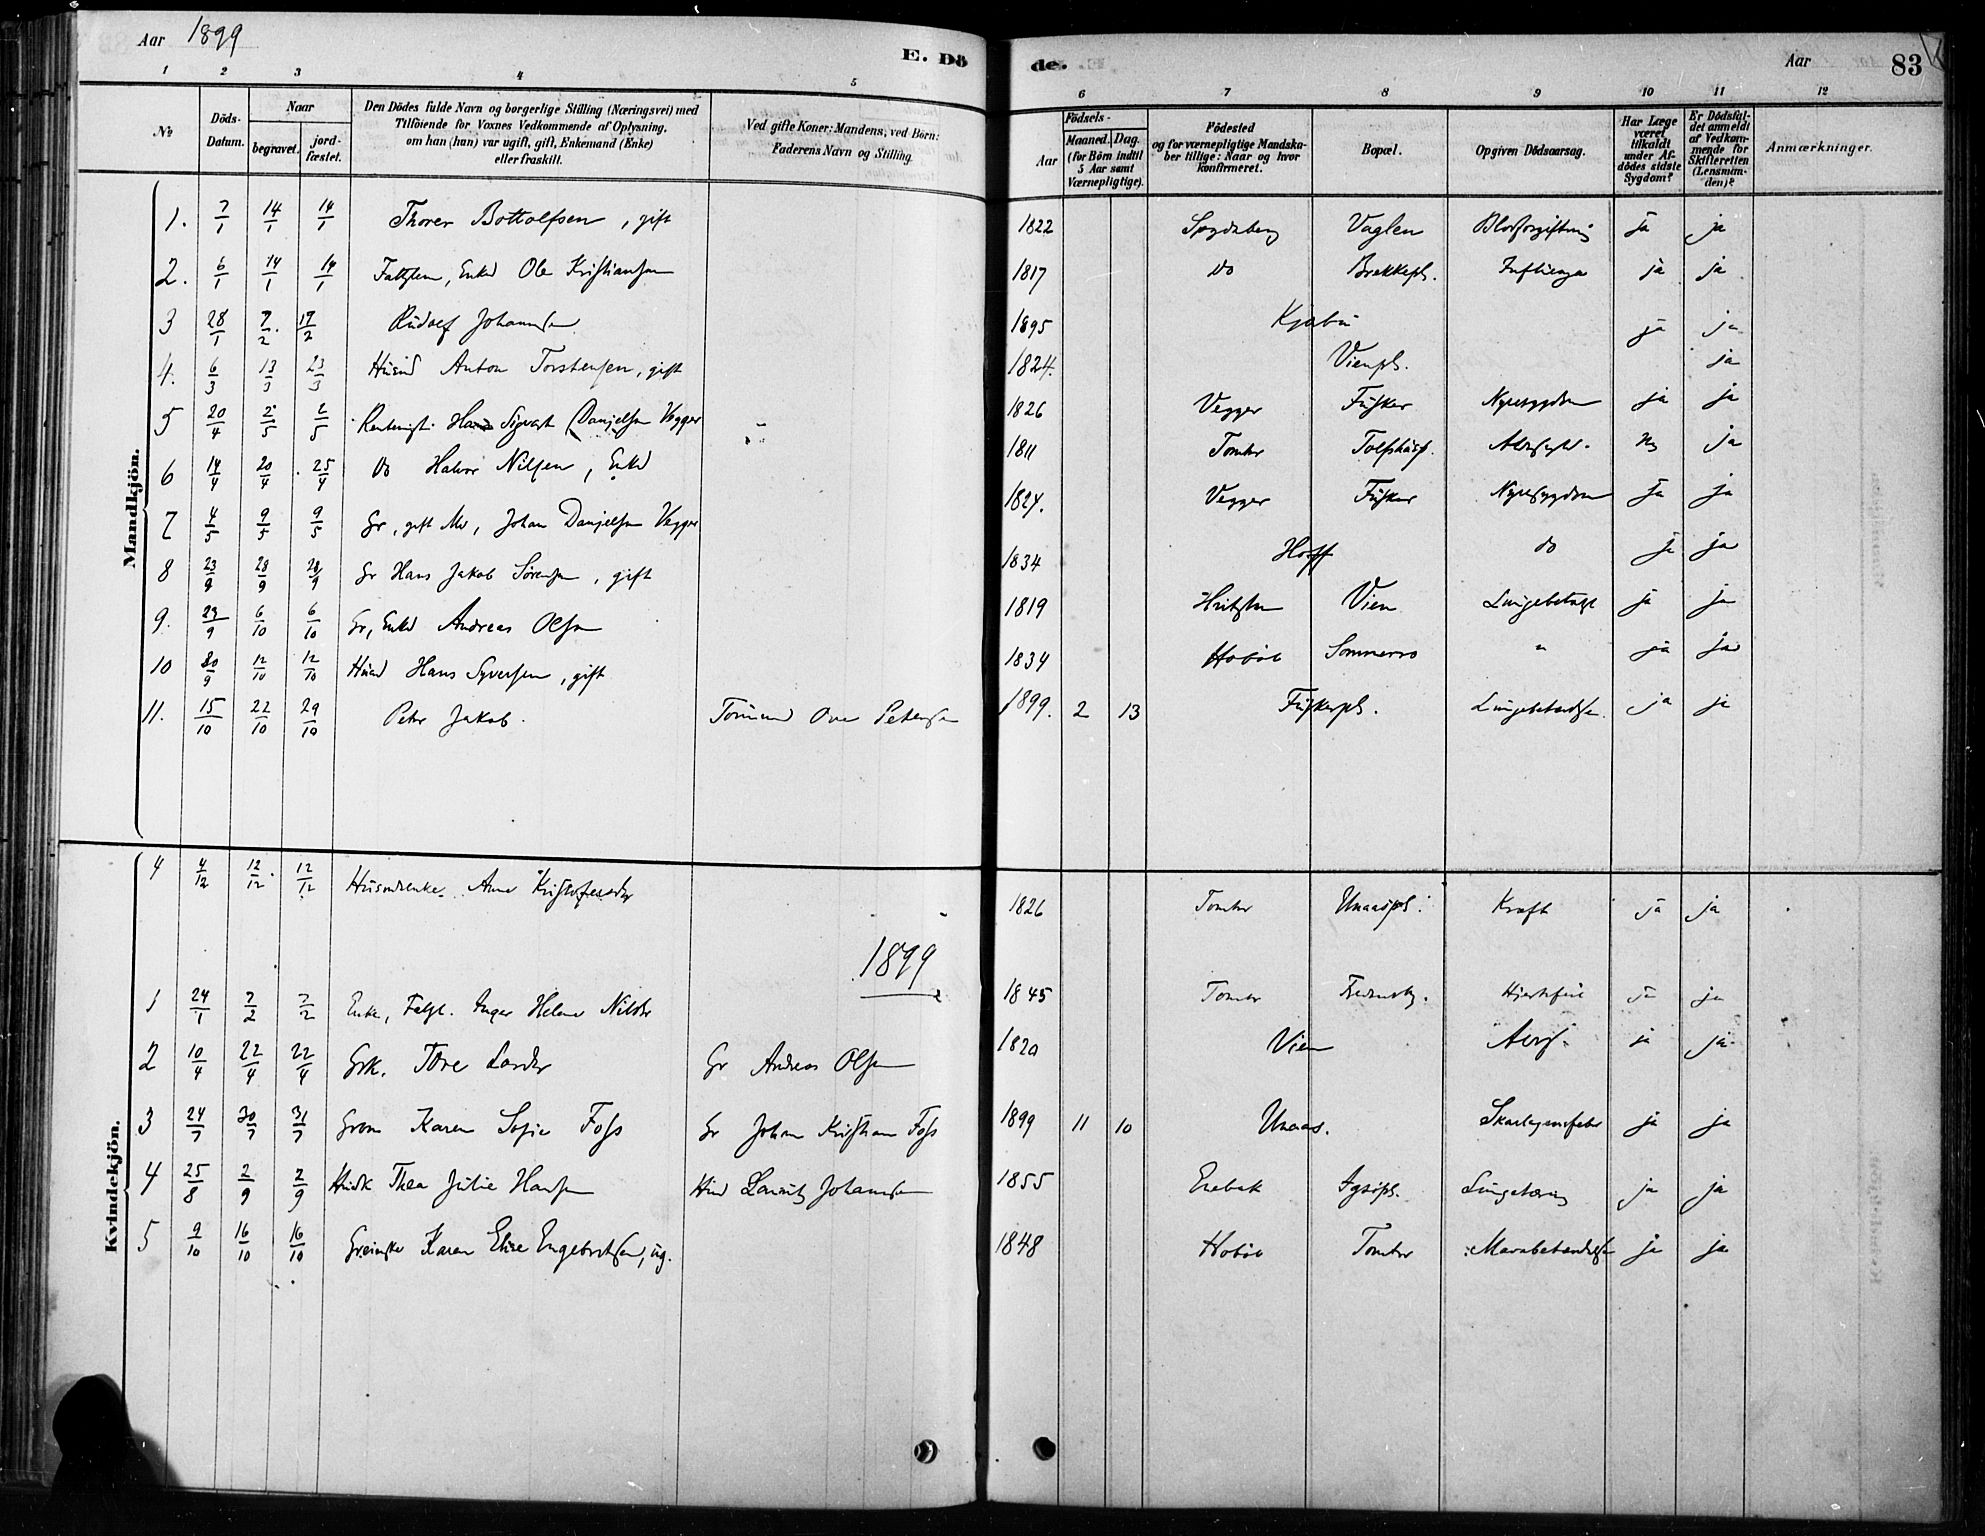 Aar 1899
E. Dö
de.
Aar
83
1 2 3 4 5 6 7 8 9 10 11 12
No
Döds-Datum.
Naar
begravet.
jord-fæstet.
Den Dödes fulde Navn og borgerlige Stilling (Næringsvei) med
Tilföiende for Voxnes Vedkommende af Oplysning,
om han (hun) var ugift, gift, Enkemand (Enke)
eller fraskilt.
Ved gifte Koner: Mandens, ved Börn:
Faderens Navn og Stilling.
Födsels-
Aar
Maaned. Dag.
(for Börn indtil
5 Aar samt
Værnepligtige).
Födested
og for værnepligtige Mandska-
ber tillige: Naar og hvor
konfirmeret.
Bopæl.
Opgiven Dödsaarsag.
Har Læge
været
tilkaldt
under Af-
dödes sidste
Sygdom?
Er Dödsfal-
det anmeldt
af Vedkom-
mende for
Skifteretten
(Lensman-
den)?
Anmærkninger.
Mandkjön.
1. 7/1 14/1 14/1 Thorer Bottolfsen, gift 1822 Spydeberg Vaglen Blodforgiftning ja ja
2. 6/1 14/1 14/1 Enkd Ole Kristiansen 1817 do Brekkepl. Influenza ja ja
3 28/1 7/2 19/2 Rudolf Johannsen 1895 ja ja
4. 6/3 13/3 23/3 Husmd Anton Torstensen, gift 1824. Vienpl. ja
5 20/4 2/5 2/5 Hans Sigvart Danjelsen Vegger 1826 Vegger Fusker Nyresygdom ja ja
6 14/4 20/4 25/4 do Halvor Nilsen, Enkd 1811 Tomter ja
7 4/5 9/5 9/5 Gr, gift Johan Danjelsen Vegger 1827. Vegger Fusker Nyresygdom ja ja
8 23/9 28/9 28/9 Gr Hans Jakob Sørensen, gift 1834 Hoff do ja ja
9. 29/9 6/10 6/10 Gr, Enkd Andreas Olsen 1819 Vien ja ja
10 30/9 12/10 12/10 Husmd Hans Syversen, gift 1834 Hobøl Sommerro " ja ja
11. 15/10 22/10 29/10 Peter Jakob. Petersen 1899. 2 13 Fuskerpl. Lungebetændelse ja ja
Kvindekjön.
4 4/12 12/12 12/12 Husmdsenke Anne Kristofersdtr 1826 Tomter Unaaspl. Kræft ja ja
1899
1 24/1 7/2 7/2 Enke, Inger Helene Nilsdtr 1845 Tomter Hjertefeil ja ja
2 10/4 22/4 22/4 Grk. Tore Larsdtr Gr Andreas Olsen 1820 Vien ja ja
3 24/7 30/7 31/7 Karen Sofie Foss Gr Johan Kristian Foss 1899 11 10 Unaas. Skarlagensfeber ja ja
4 25/8 2/9 2/9 Husk Thea Julie Hansen Hmd Lauritz Johannsen 1855 Enebak Lungetæring ja ja
5 9/10 16/10 16/10 Karen Elise Engebretsen, ug. 1848 Hobøl Tomter Mavebetændelse ja ja